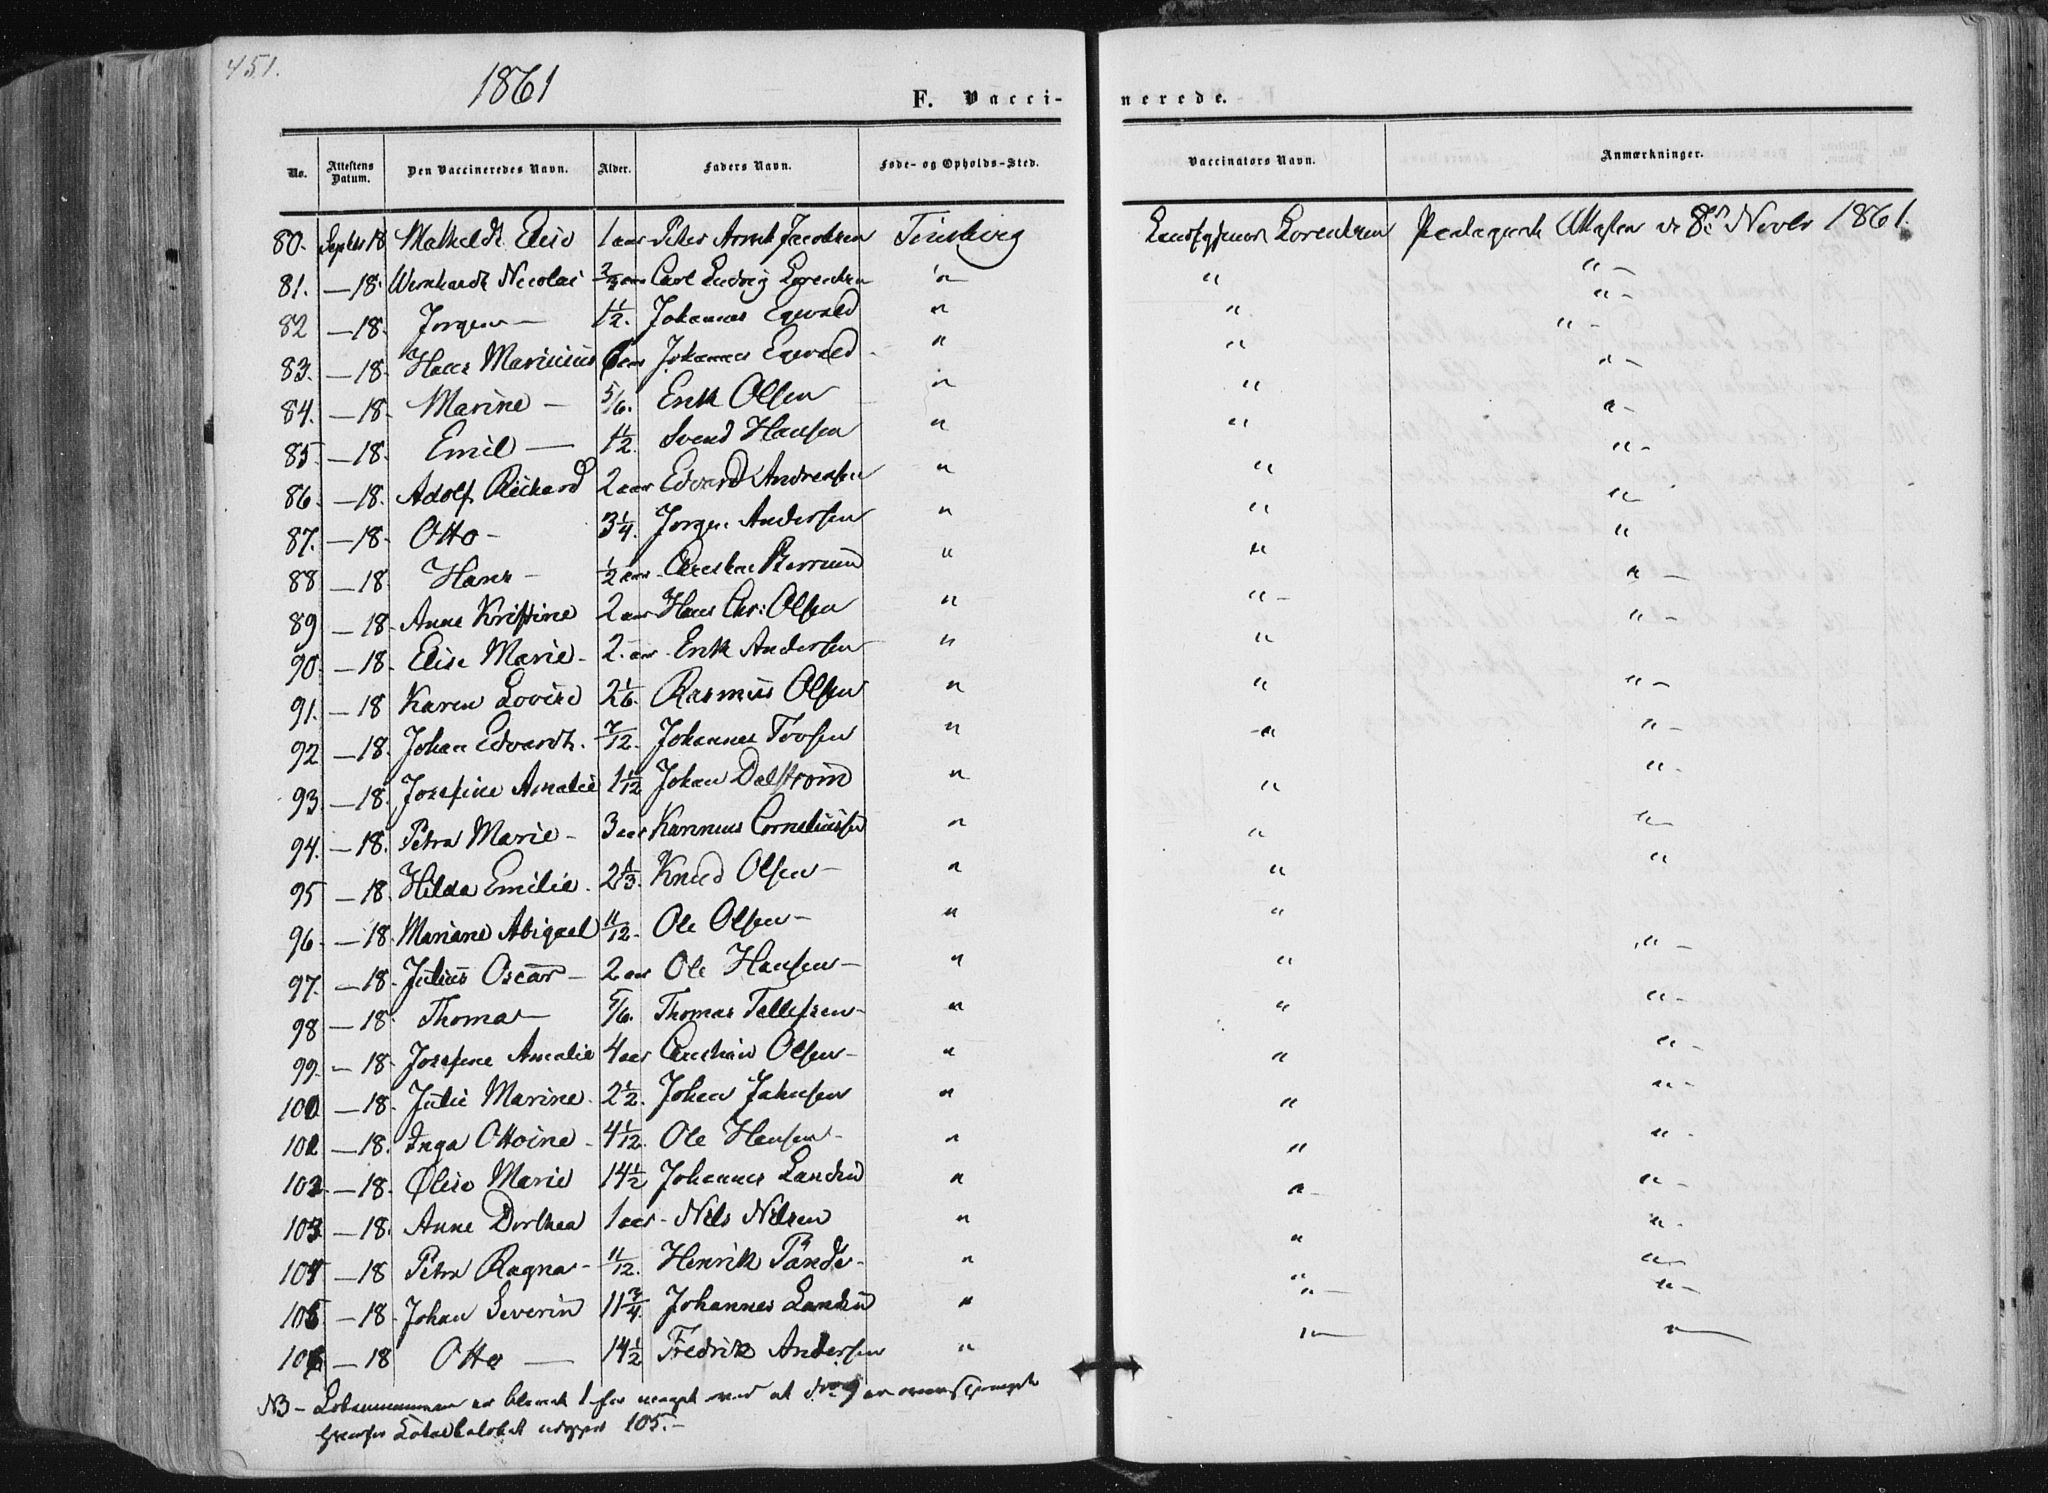 451.
1861
F. Vaccinerede.
No. Attestens Datum. Den Vaccineredes Navn. Alder. Faders Navn. Føde- og Opholds-Sted. Vaccinators Navn. Anmærkninger.
80. Septbr 18 Mathilde Elise 1 aar Peter Arndt Jacobsen Lorentzen Attesten 8de Novbr 1861.
81. — 18. Wernhardt Nicolai 2/3 aar Carl Ludvig Lorentzen " " " –
82 — 18. Jorgen — 1 1/2. Johannes Egevald " " " –
83. — 18. Hans Marinius 6 aar Johannes Egevald " " " –
84. — 18. Marine — 5/6. Erik Olsen " " " –
85. — 18. Emil — 1 1/2. Svend Hansen " " " –
86. — 18. Adolf Richard 2 aar Edvard Andreasen " " " –
87. — 18. Otto – 3 1/4. Jorgen Andersen " " "
88 — 18. Hans – 1/2 aar " " "
89 — 18. Anne Kristine 2 aar Hans Chr: Olsen " " " –
90. — 18. Elise Marie – 2. aar Erik Andersen " " " –
91. — 18 Karen Lovise 2 1/6. Rasmus Olsen " " " –
92 — 18. Johan Edvardt. 7/12. Johannes " " " –
93. — 18. Josefine Amalie 1 1/12 Johan Dalstrøm " " " –
94. — 18. Petra Marie – 3 aar Corneliussen " " " –
95 — 18. Hilda Emilie. 2 1/3. Knud Olsen — " " "
96. — 18. Mariane Abigael 11/12. Ole Olsen – " " " –
97. — 18. Julius Oscar – 2 aar Ole Hansen — " " " –
98 — 18. Thomas — 5/6. Thomas Tellefsen – " " " –
99. — 18. Josefine Amalie 4 aar Christian Olsen – " " " –
100 — 18. Julie Marine. 2 1/2. Johan Johnsen " " " –
101 — 18. Inga Ottoine – 4 1/12. Ole Hansen – " " " –
102. — 18. Olise Marie 14 1/2 Johannes " " " –
103 — 18. Anne Dorthea 1 aar – Nils Nilsen " " " –
104 — 18 Petra Ragna – 11/12. Henrik " " " –
105 — 18. Johan Severin 11 3/4. Johannes " " " –
106 — 18 Otto — 14 1/2 Fredrik Andersen " " "
NB – Lobenummeren er blevet 1 for meget ved at No: 9 er
105. –